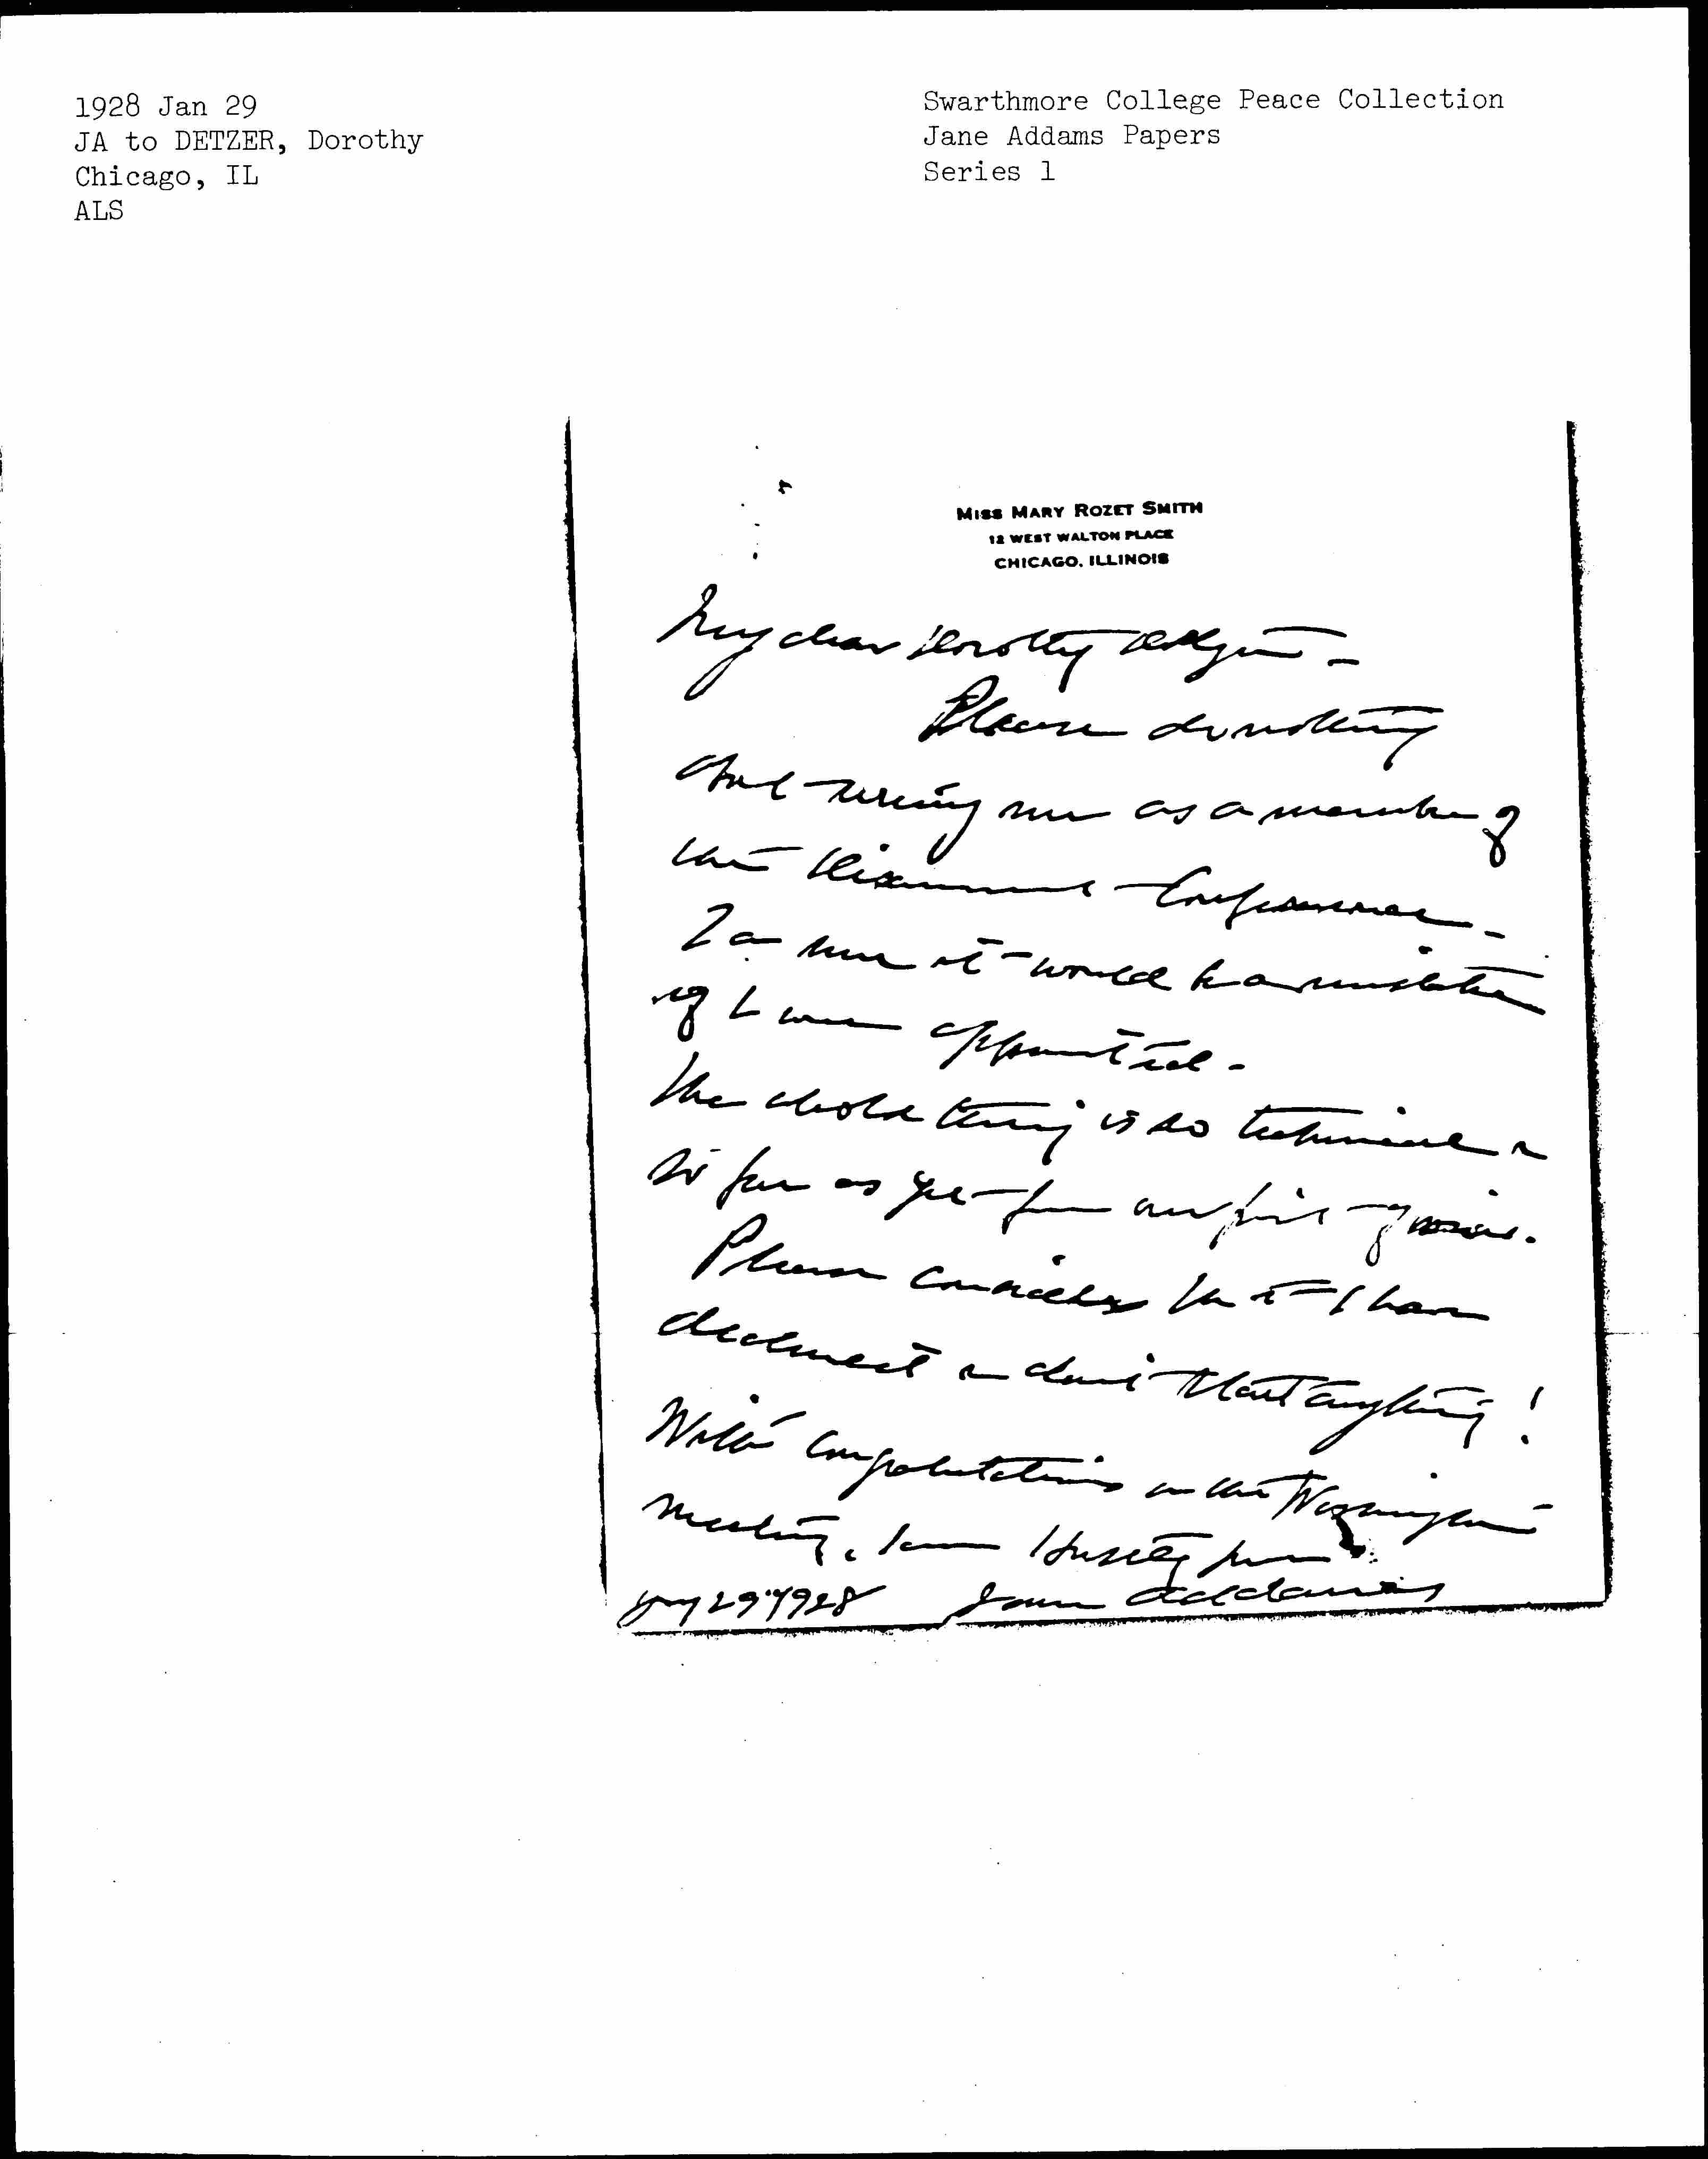 1928 Jan 29
JA to DETZER, Dorothy
Chicago, IL
ALS
Swarthmore College Peace Collection
Jane Addams Papers
Series 1
MISS MARY ROZET SMITH
12 WEST WALTON PLACE
CHICAGO, ILLINOIS
My dear Dorothy Detzer –
Please do nothing
about urging me as a member of
the Disarmament Conference –
I am sure it would be a mistake
if I were appointed –
The whole thing is so technical &
so far as yet from our point of view.
Please consider that I have
declined & don't start anything!
With congratulations on the Washington
meeting, I am
Jan 29" 1928 Jane Addams